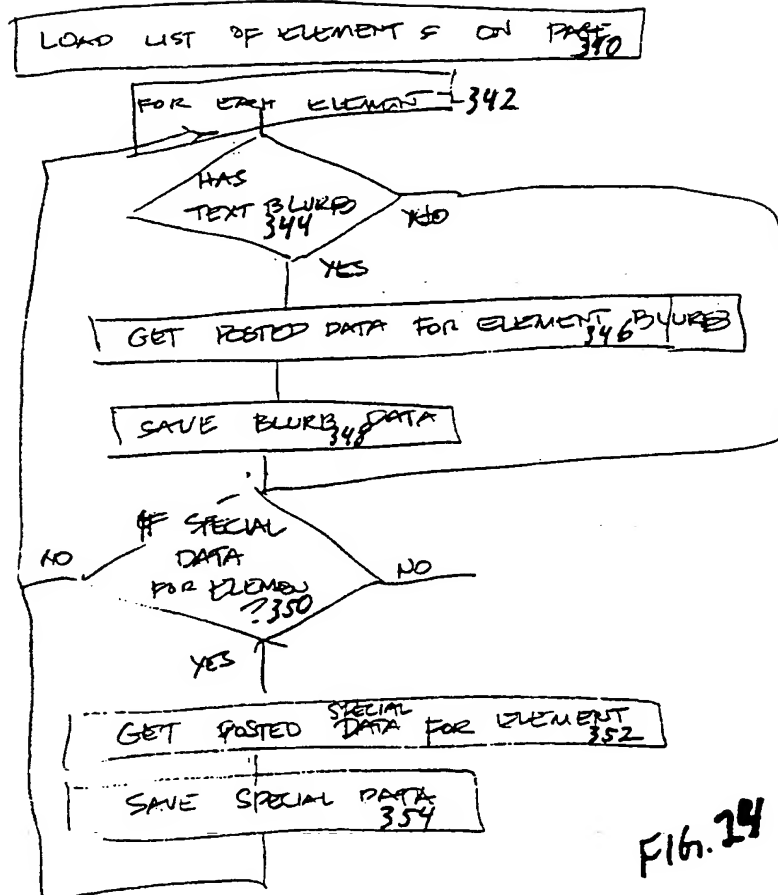 LOAD LIST OF ELEMENTS ON PAGE
340
FOR EACH ELEMENT 342
HAS
TEXT BLURB
344
NO
YES
GET POSTED DATA FOR ELEMENT BLURB
346
SAVE BLURB DATA
348
IF SPECIAL
DATA
FOR ELEMEN
? 350
NO
NO
YES
GET POSTED SPECIAL DATA FOR ELEMENT
352
SAVE SPECIAL DATA
354
FIG. 24